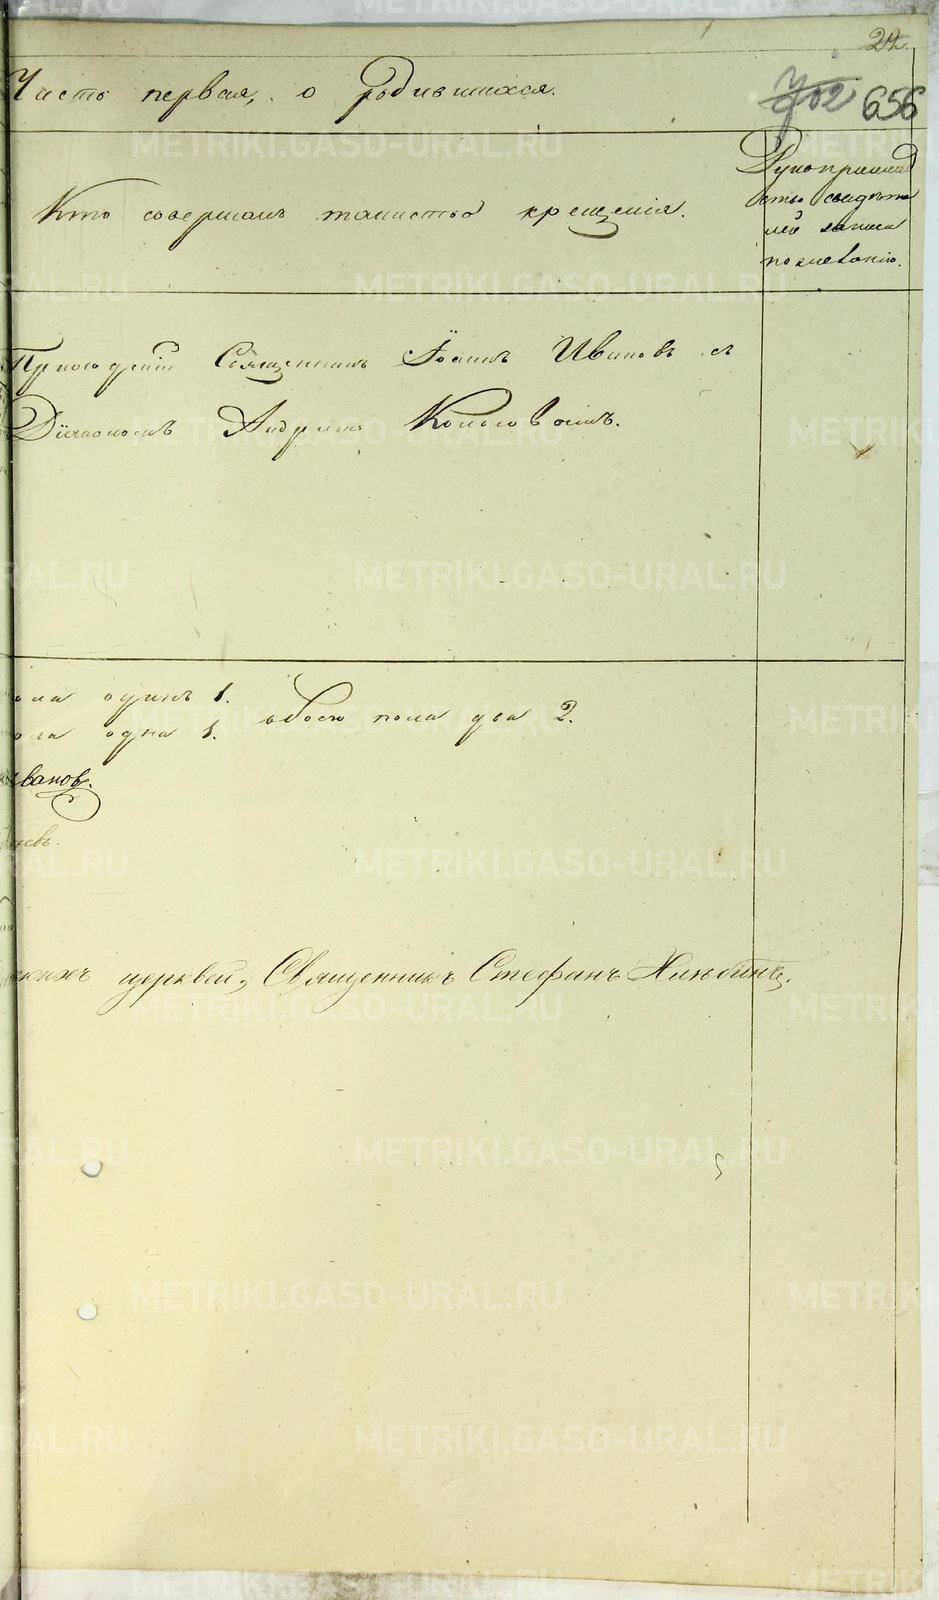 22.
Часть первая, о родившихся.
702 656
Кто совершалъ таинство крещенія.
Рукоприклад
ство свидѣте
лей записи
по желанію.
Приходскій Священникъ Іоаннъ Ивановъ съ
Діакономъ Андреемъ
ола одинъ 1.
обоего пола два 2.
ола одна 1.
вановъ.
евъ.
церквей, Священникъ Стефанъ
METRIKI.GASO-URAL.RU